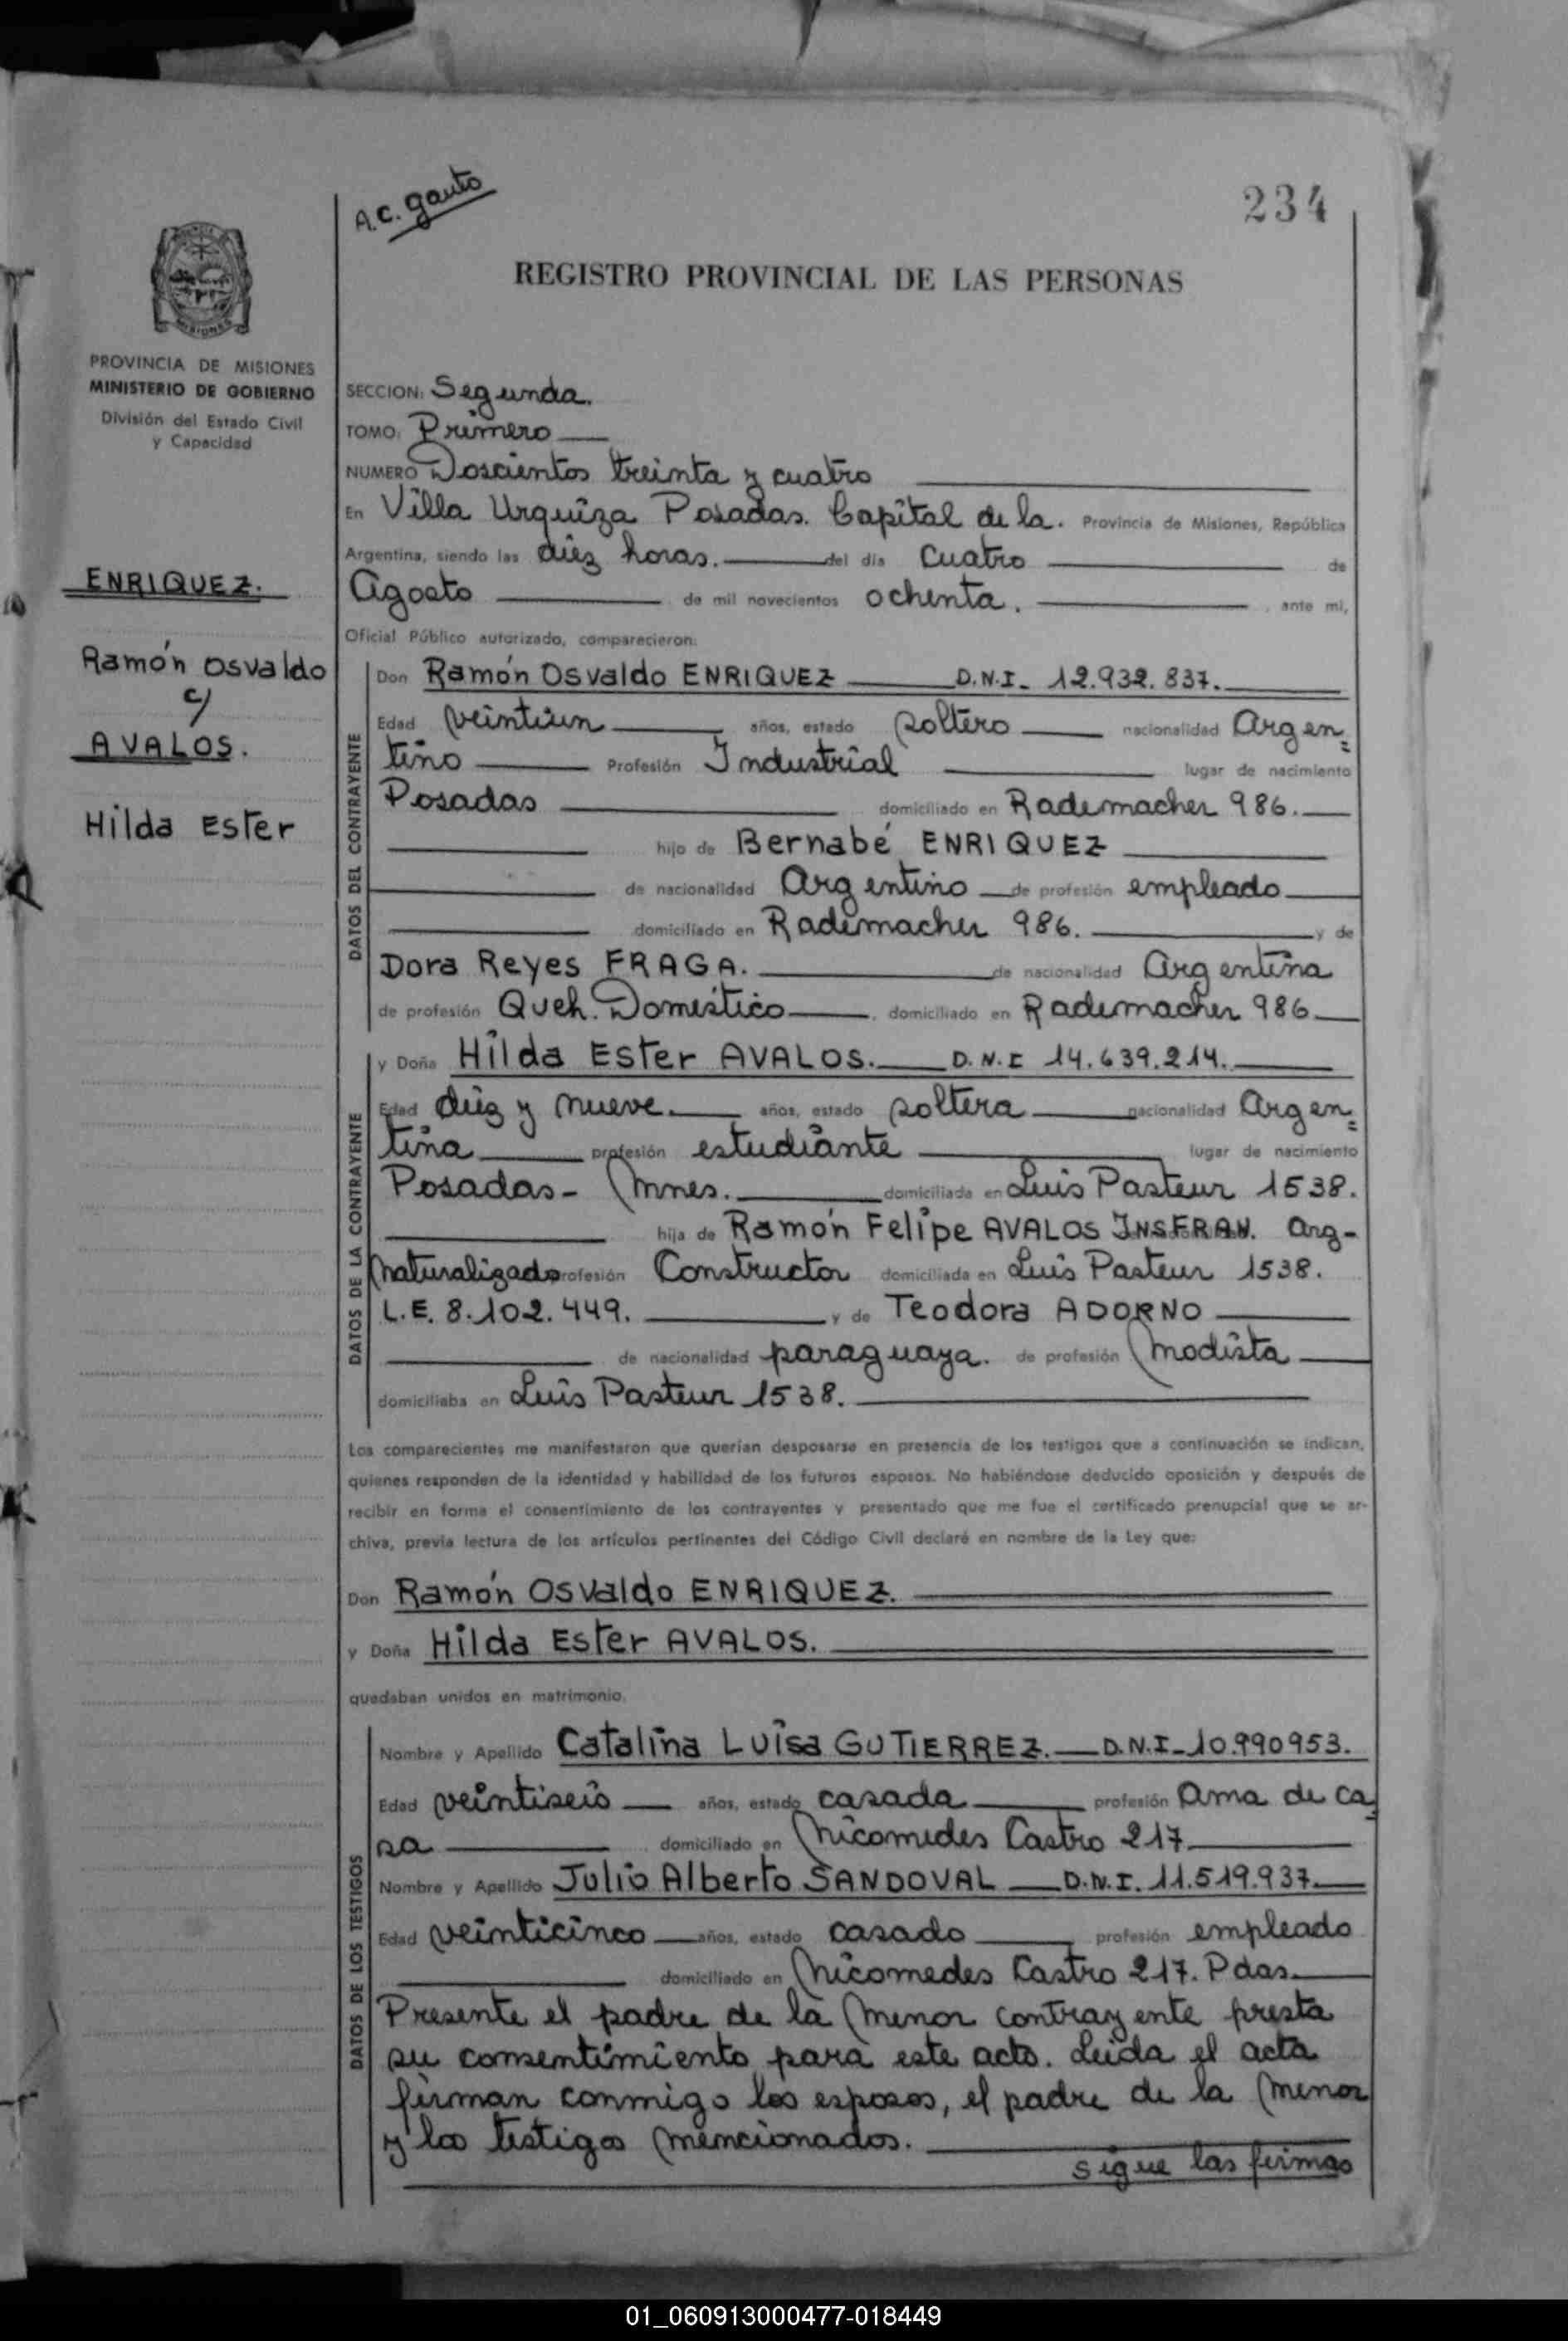 A.C. Gauto
234
REGISTRO PROVINCIAL DE LAS PERSONAS
MISIONES
PROVINCIA DE MISIONES
MINISTERIO DE GOBIERNO
División del Estado Civil
y Capacidad
ENRIQUEZ.
Ramón Osvaldo
c/
AVALOS.
Hilda Ester
SECCION: Segunda.
TOMO: Primero
NUMERO Doscientos treinta y cuatro
En Villa Urquiza Posadas. Capital de la. Provincia de Misiones, República
Argentina, siendo las diez horas. del día cuatro de
Agosto de mil novecientos ochenta. , ante mi,
Oficial Público autorizado, comparecieron:
DATOS DEL CONTRAYENTE
Don Ramón Osvaldo ENRIQUEZ D.N.I- 12.932.837.
Edad veintiun años, estado soltero nacionalidad Argen=
tino Profesión Industrial lugar de nacimiento
Posadas domiciliado en Rademacher 986.
hijo de Bernabé ENRIQUEZ
de nacionalidad Argentino de profesión empleado
domiciliado en Rademacher 986. y de
Dora Reyes FRAGA. de nacionalidad Argentina
de profesión Queh. Doméstico , domiciliado en Rademacher 986
DATOS DE LA CONTRAYENTE
y Doña Hilda Ester AVALOS. D.N.I 14.639.214.
Edad diez y nueve. años, estado soltera nacionalidad Argen=
tina profesión estudiante lugar de nacimiento
Posadas- Mnes. domiciliada en Luis Pasteur 1538.
hija de Ramón Felipe AVALOS INSFRAN. Arg-
Naturalizado profesión Constructor domiciliada en Luis Pasteur 1538.
L.E. 8.102.449. y de Teodora ADORNO
de nacionalidad paraguaya. de profesión Modista
domiciliaba en Luis Pasteur 1538.
Los comparecientes me manifestaron que querían desposarse en presencia de los testigos que a continuación se indican,
quienes responden de la identidad y habilidad de los futuros esposos. No habiéndose deducido oposición y después de
recibir en forma el consentimiento de los contrayentes y presentado que me fue el certificado prenupcial que se ar-
chiva, previa lectura de los artículos pertinentes del Código Civil declaré en nombre de la Ley que:
Don Ramón Osvaldo ENRIQUEZ.
y Doña Hilda Ester AVALOS.
quedaban unidos en matrimonio.
DATOS DE LOS TESTIGOS
Nombre y Apellido Catalina Luisa GUTIERREZ. D.N.I-10.990953.
Edad veintiseis años, estado casada profesión Ama de ca
sa domiciliado en Nicomedes Castro 217
Nombre y Apellido Julio Alberto SANDOVAL D.N.I. 11.519.937
Edad veinticinco años, estado casado profesión empleado
domiciliado en Nicomedes Castro 217. Pdas.
Presente el padre de la menor contrayente presta
su consentimiento para este acto. Leida el acta
firman conmigo los esposos, el padre de la menor
y los testigos mencionados.
sigue las firmas
01_060913000477-018449